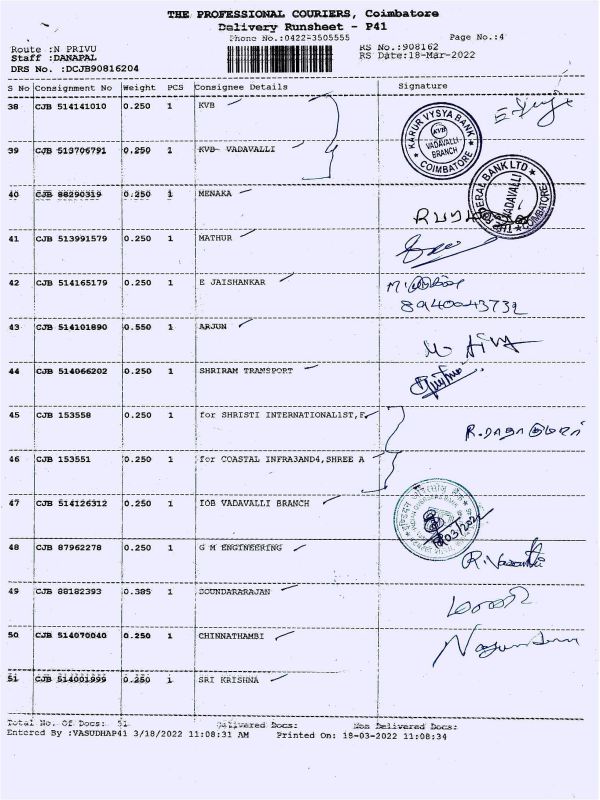 THE PROFESSIONAL COURIERS, Coimbatore
Delivery Runsheet - P41
Phone No.:0422-3505555
Page No.:4
Route :N PRIVU
RS No.:908162
Staff :DANAPAL
RS Date:18-Mar-2022
DRS No. :DCJB90816204
S No Consignment No Weight PCS Consignee Details Signature
38 CJB 514141010 0.250 1 KVB
KARUR VYSYA BANK
KVB
VADAVALLI
BRANCH
COIMBATORE
39 CJB 513706791 0.250 1 KVB- VADAVALLI
40 CJB 88290319 0.250 1 MENAKA
THE FEDERAL BANK LTD
VADAVALLI
COIMBATORE
41 CJB 513991579 0.250 1 MATHUR
42 CJB 514165179 0.250 1 E JAISHANKAR
8940043732
43 CJB 514101890 0.550 1 ARJUN
44 CJB 514066202 0.250 1 SHRIRAM TRANSPORT
45 CJB 153558 0.250 1 for SHRISTI INTERNATIONAL1ST,F
46 CJB 153551 0.250 1 for COASTAL INFRA3AND4,SHREE A
47 CJB 514126312 0.250 1 IOB VADAVALLI BRANCH
48 CJB 87962278 0.250 1 G M ENGINEERING
49 CJB 88182393 0.385 1 SOUNDARARAJAN
50 CJB 514070040 0.250 1 CHINNATHAMBI
51 CJB 514001999 0.250 1 SRI KRISHNA
Total No. Of Docs: 51 Delivered Docs: Non Delivered Docs:
Entered By :VASUDHAP41 3/18/2022 11:08:31 AM Printed On: 18-03-2022 11:08:34